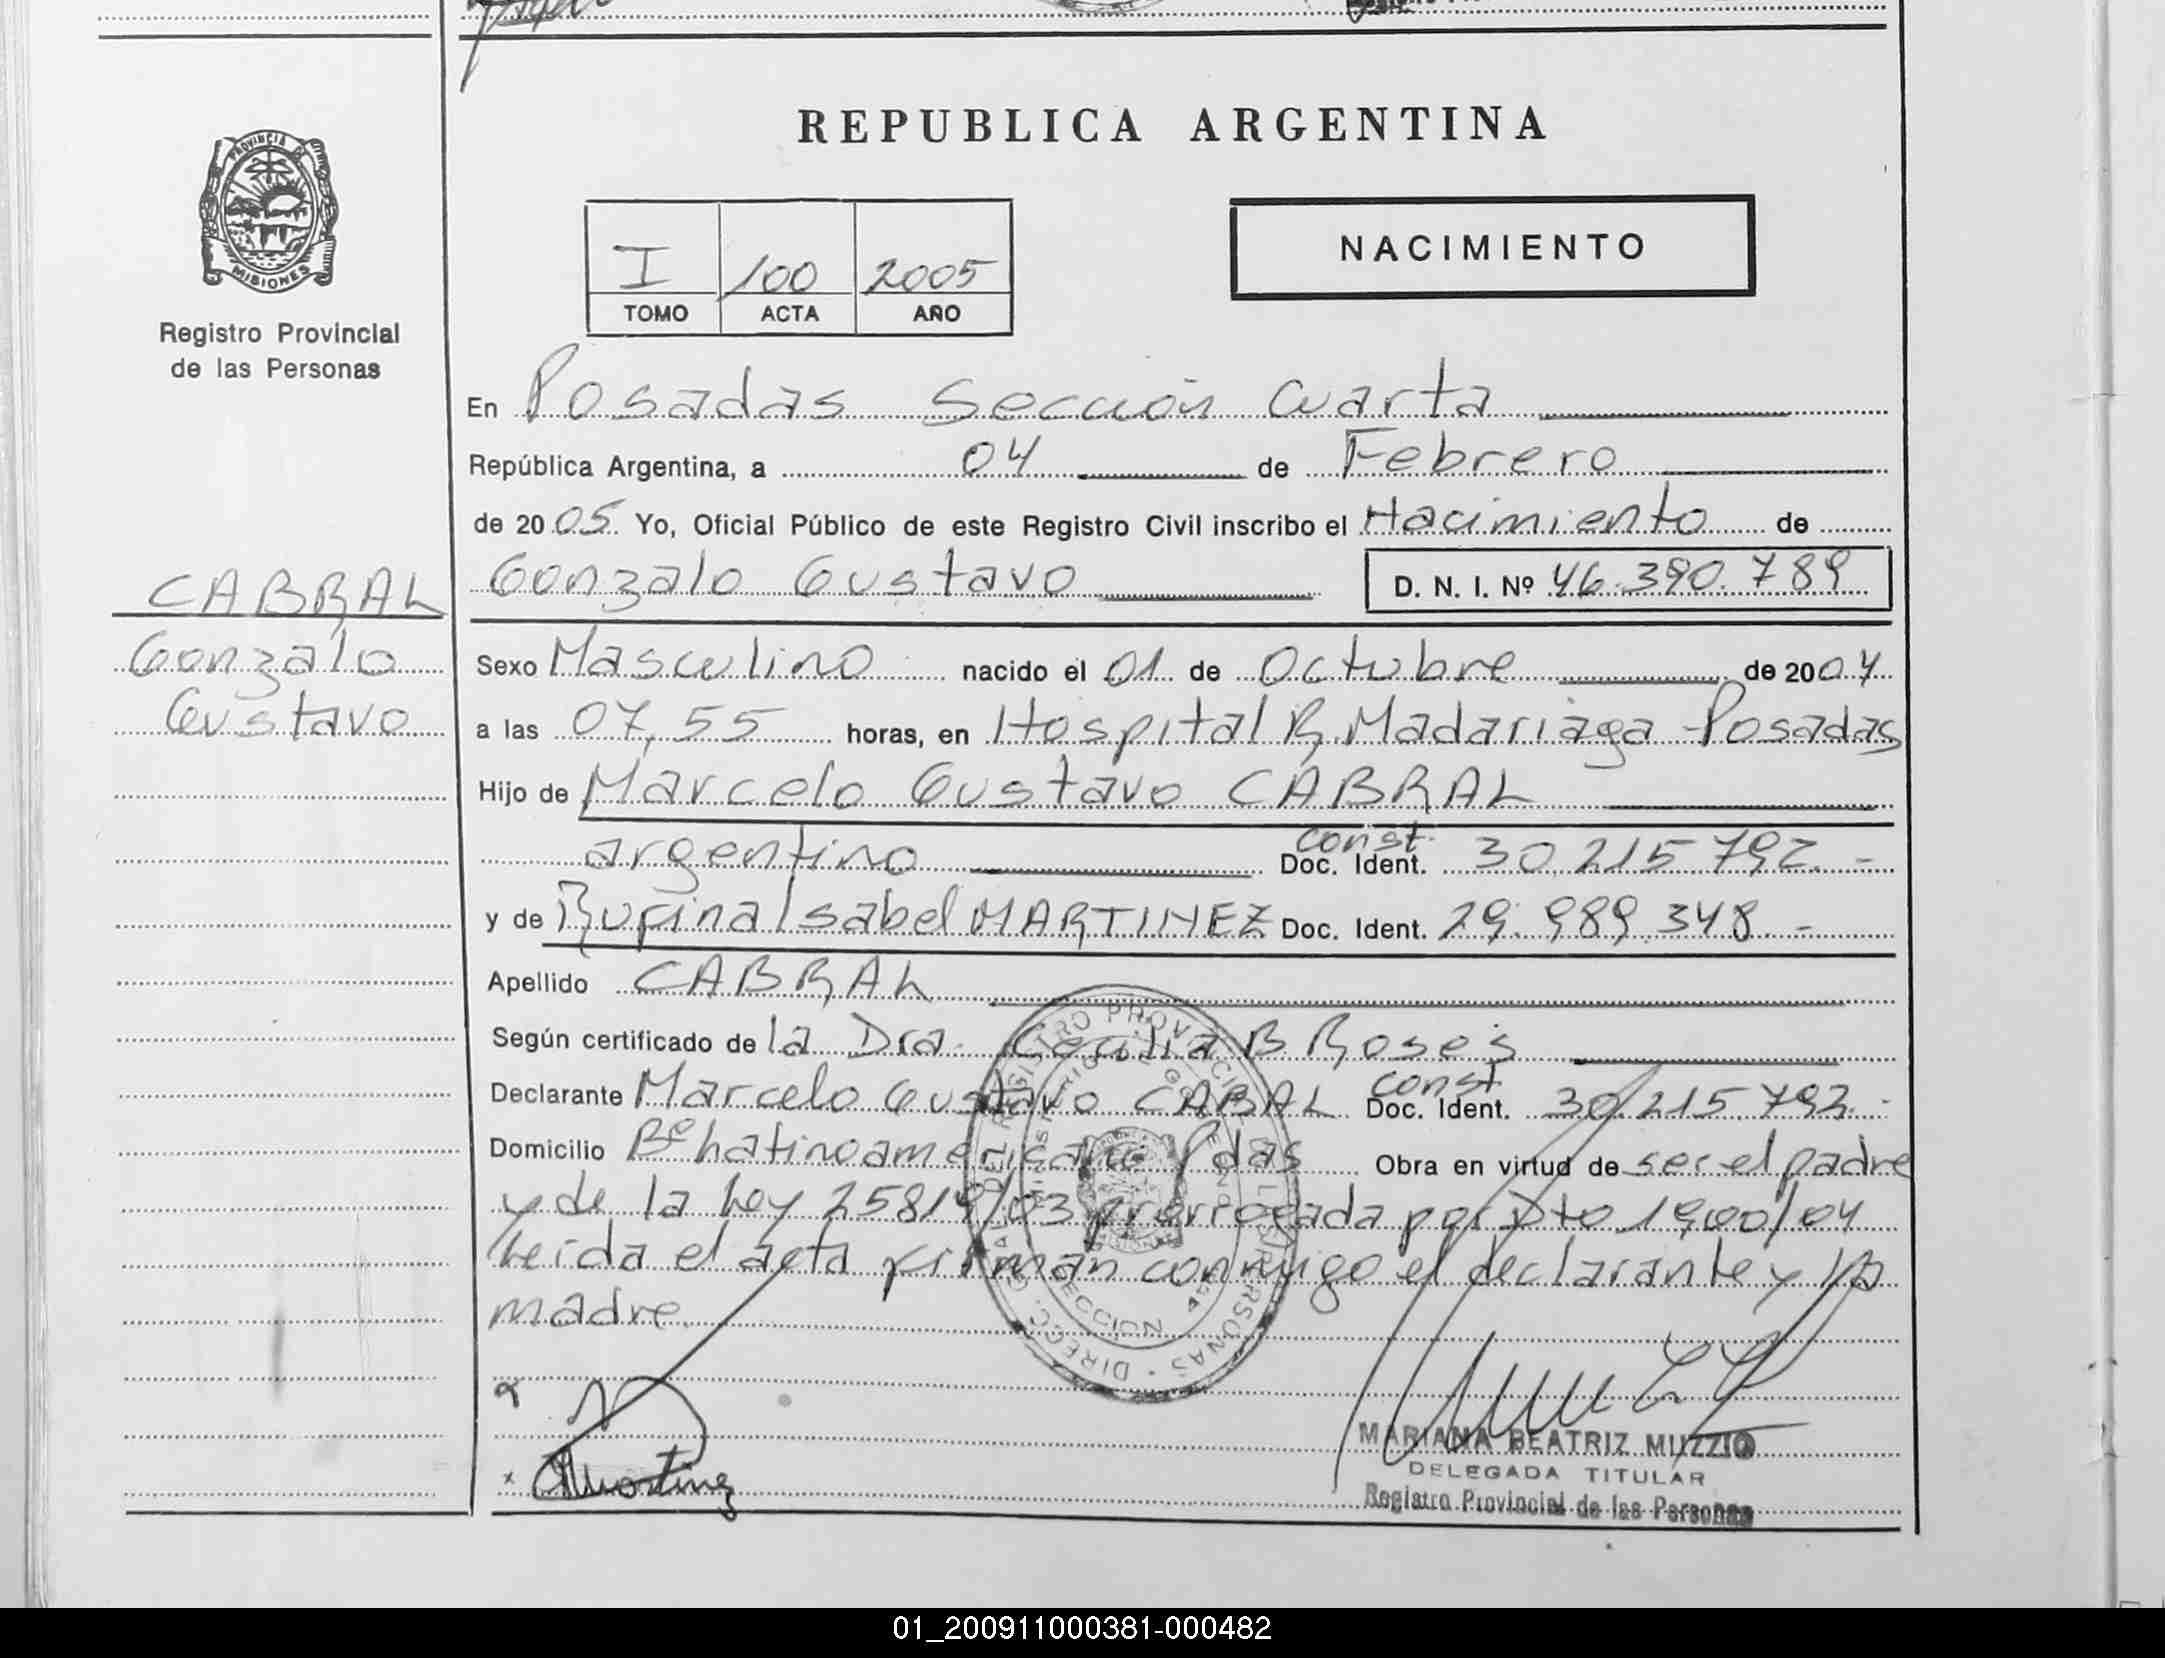 PROVINCIA DE
MISIONES
Registro Provincial
de las Personas
CABRAL
Gonzalo
Gustavo
REPUBLICA ARGENTINA
I 100 2005
TOMO ACTA AÑO
NACIMIENTO
En Posadas Sección Cuarta
República Argentina, a 04 de Febrero
de 2005 Yo, Oficial Público de este Registro Civil inscribo el Nacimiento de
Gonzalo Gustavo D. N. I. Nº 46.390.789
Sexo Masculino nacido el 01 de Octubre de 2004
a las 07,55 horas, en Hospital R, Madariaga - Posadas
Hijo de Marcelo Gustavo CABRAL
argentino const. Doc. Ident. 30.215.792.-
y de Rufina Isabel MARTINEZ Doc. Ident. 29.989.348.-
Apellido CABRAL
Según certificado de la Dra. Cecilia B Roses
Declarante Marcelo Gustavo CABAL const Doc. Ident. 30.215.792.-
Domicilio Bº Latinoamericano Pdas Obra en virtud de ser el padre
y de la Ley 25819/03 prorrogada por Dto 1900/04
Leida el acta firman conmigo el declarante y la
madre.
MARIANA BEATRIZ MUZZIO
DELEGADA TITULAR
Registro Provincial de las Personas
01_200911000381-000482